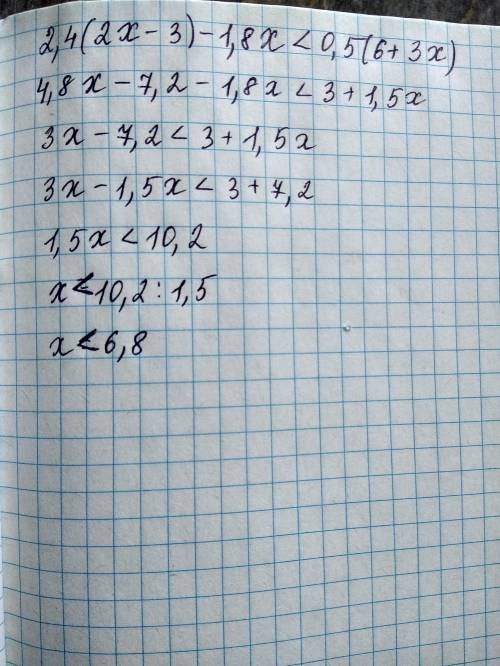 2,4(2x-3)-1,8x<0,5(6+3x)
4,8x-7,2-1,8x<3+1,5x
3x-7,2<3+1,5x
3x-1,5x<3+7,2
1,5x<10,2
x<10,2:1,5
x<6,8